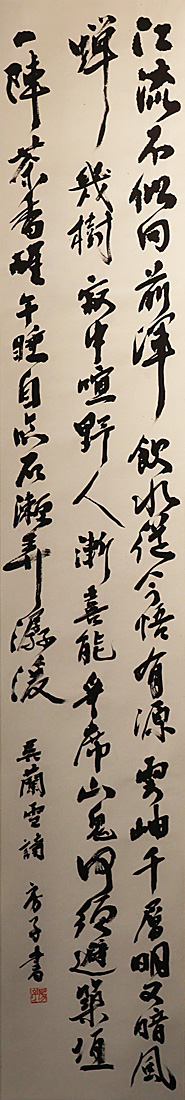 江流不似向前渾飲水從今悟有源雲岫千層明又暗風
蟬幾樹寂中喧野人漸喜能爭席山鬼何須避築垣
一陣茶香醒午睡自臨石瀨弄潺湲
吳蘭雪詩 書